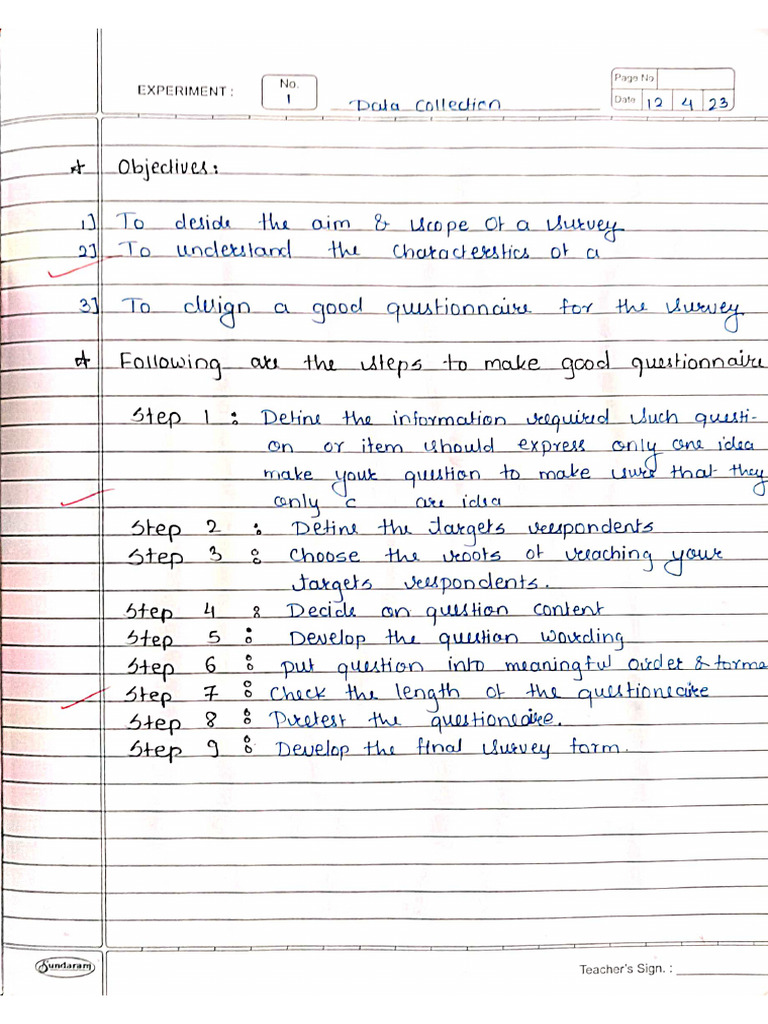 EXPERIMENT : No. 1 Data Collection Page No
Date 12 4 23
* Objectives:
1] To deside the aim & scope of a survey
2] To understand the characterstics of a
3] To design a good questionnaire for the survey
* Following are the steps to make good questionnaire
Step 1 : Define the information required such questi-
on or item should express only one idea
make your question to make sure that they
only c are idea
Step 2 : Define the targets respondents
Step 3 : Choose the roots of reaching your
targets respondents.
Step 4 : Decide on question content
Step 5 : Develop the question wording
Step 6 : put question into meaningful order & forma
Step 7 : Check the length of the questioneaire
Step 8 : Pretest the questioneaire.
Step 9 : Develop the final survey form.
Sundaram Teacher's Sign. :